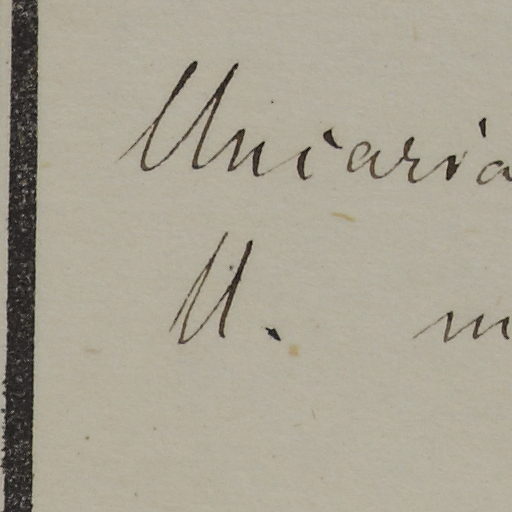 Uncaria
U. m